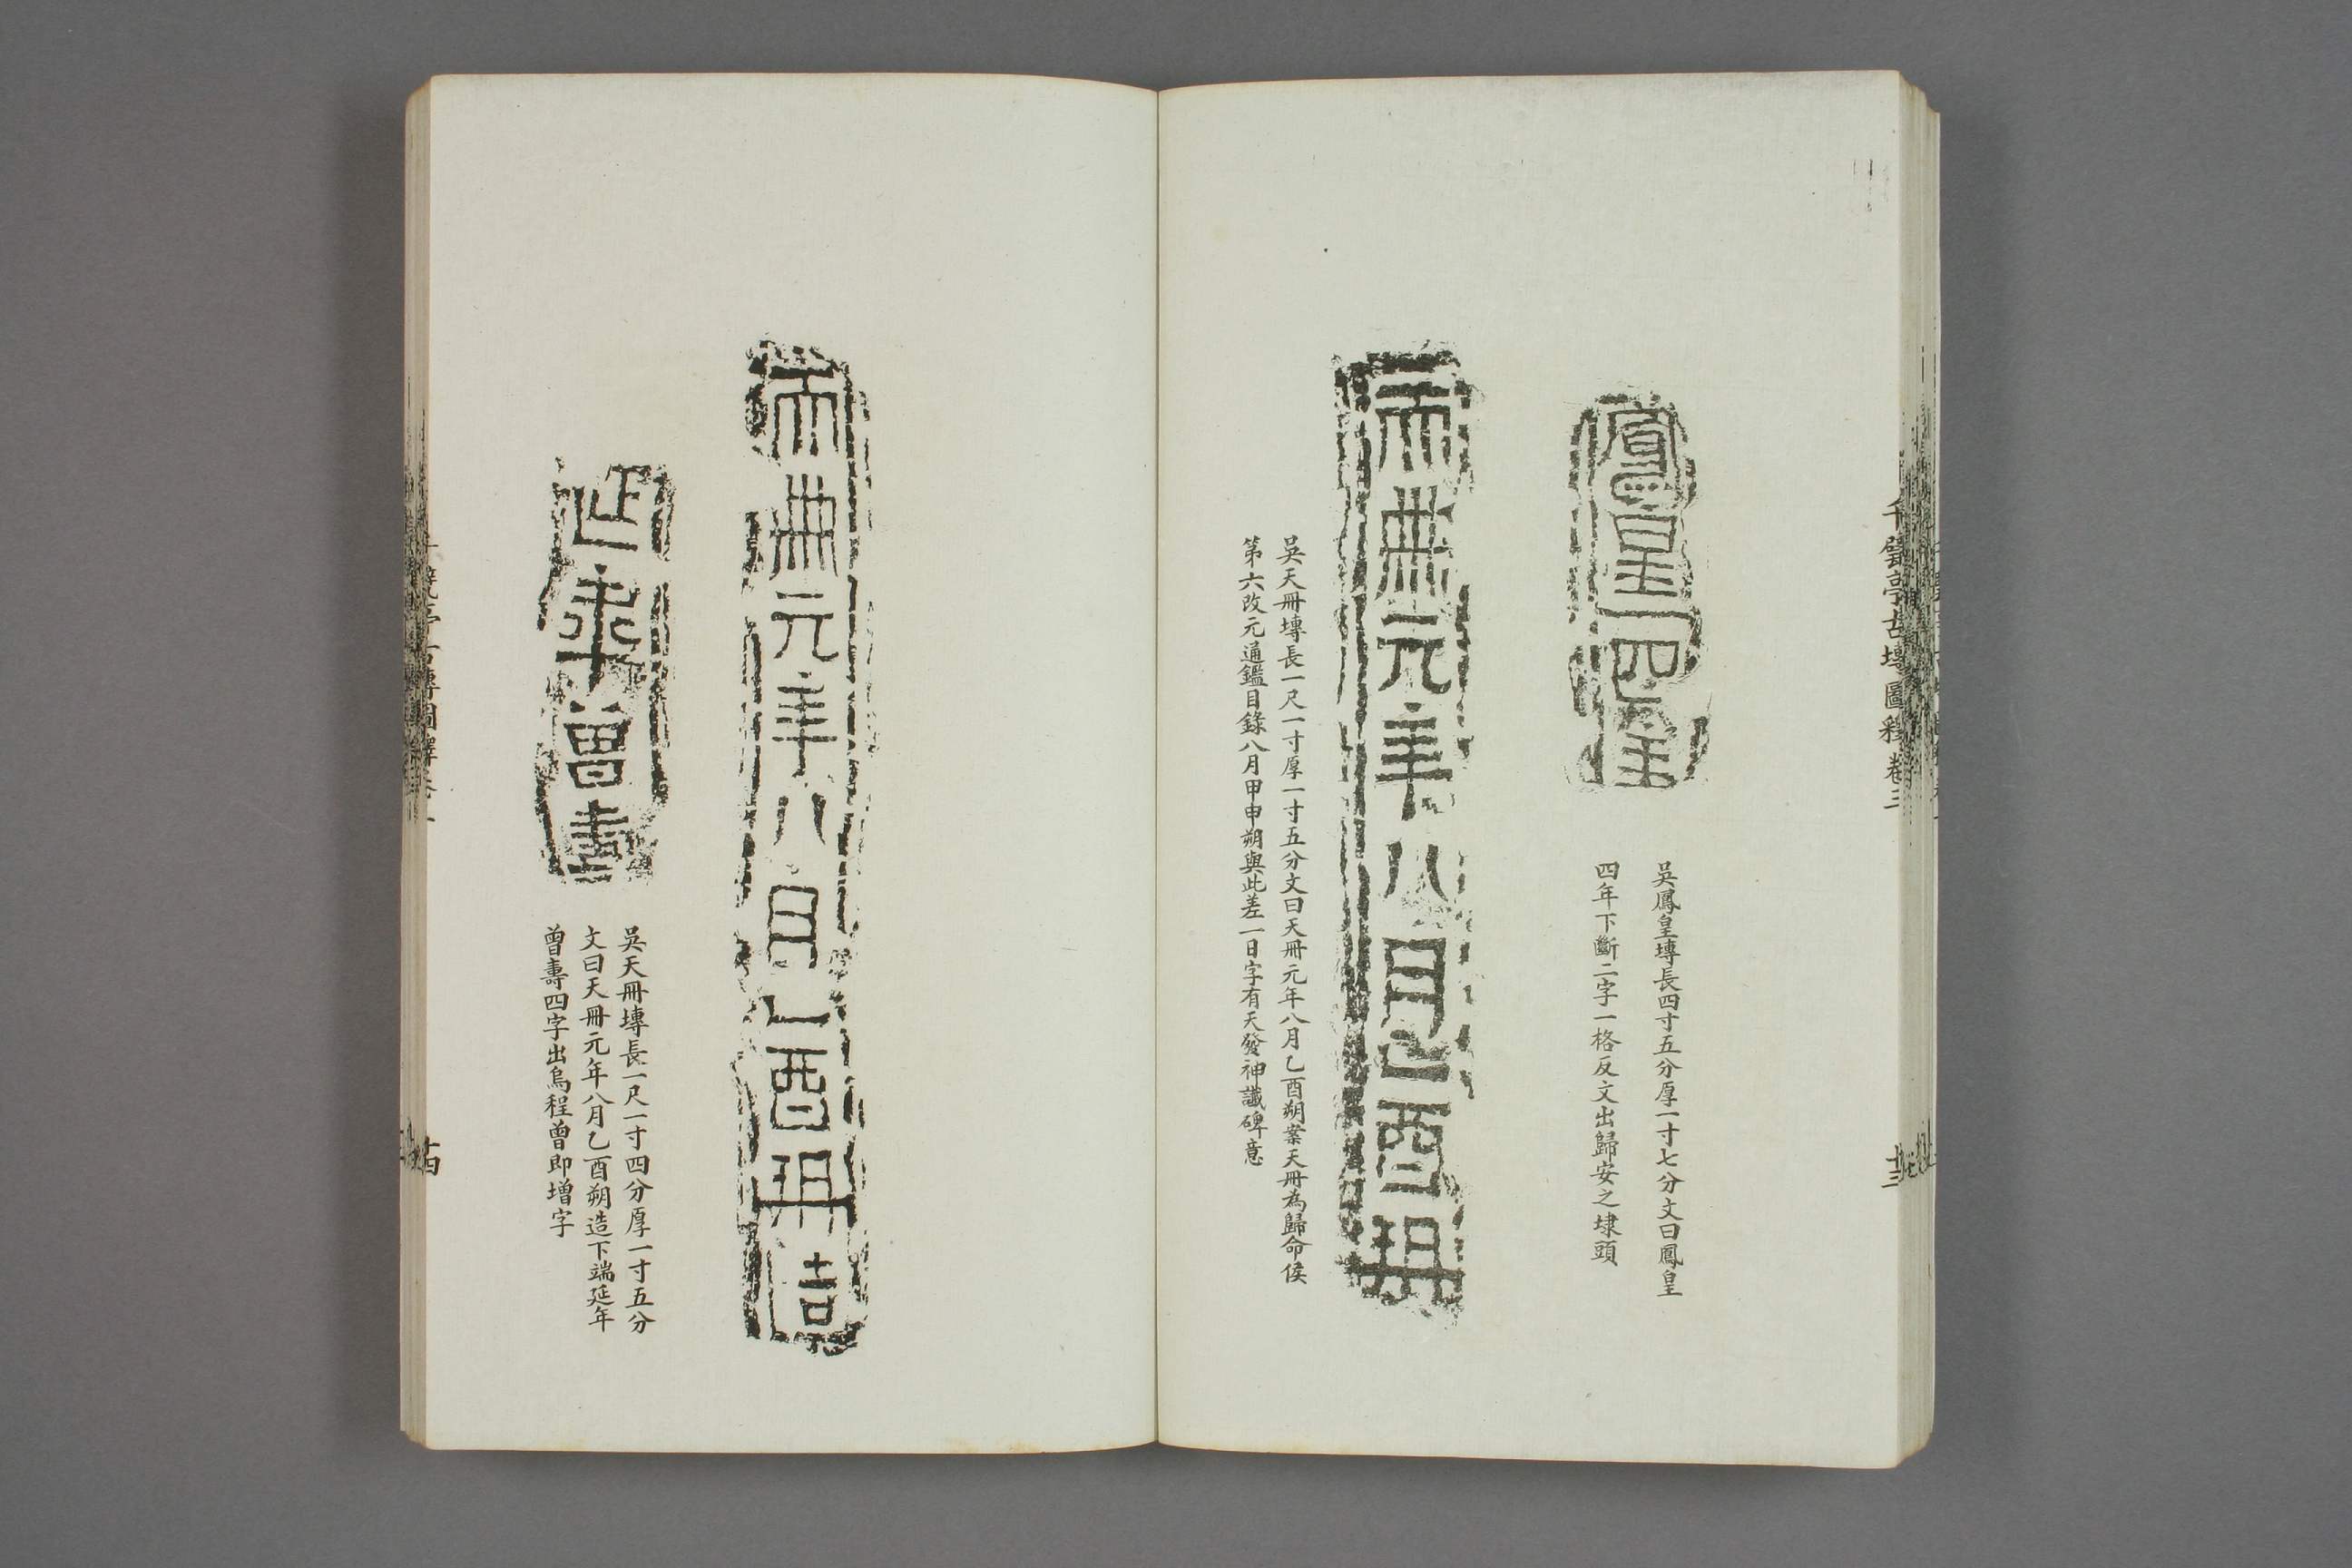 千甓亭古塼圖釋卷三
吳鳳皇塼長四寸五分厚一寸七分文曰鳳皇
四年下斷二字一格反文出歸安之埭頭
天冊元年八月乙酉朔
吳天冊塼長一尺一寸厚一寸五分文曰天冊元年八月乙酉朔案天冊為歸命侯
第六改元通鑑目錄八月甲申朔與此差一日字有天發神讖碑意
天冊元年八月乙酉朔造
延年曾壽
吳天冊塼長一尺一寸四分厚一寸五分
文曰天冊元年八月乙酉朔造下端延年
曾壽四字出烏程曾即增字